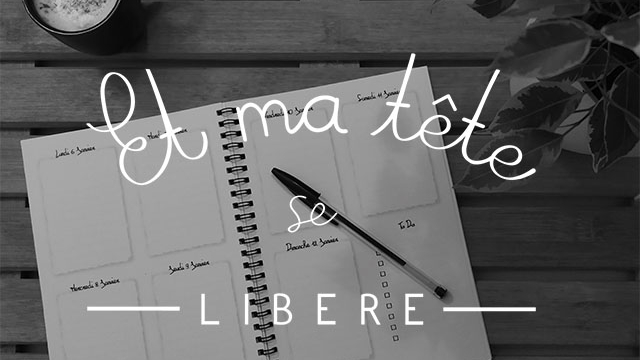 Et ma tête
se
LIBERE
Lundi 6 Janvier
Mercredi 8 Janvier
Jeudi 9 Janvier
10 Janvier
Samedi 11 Janvier
Dimanche 12 Janvier
To Do